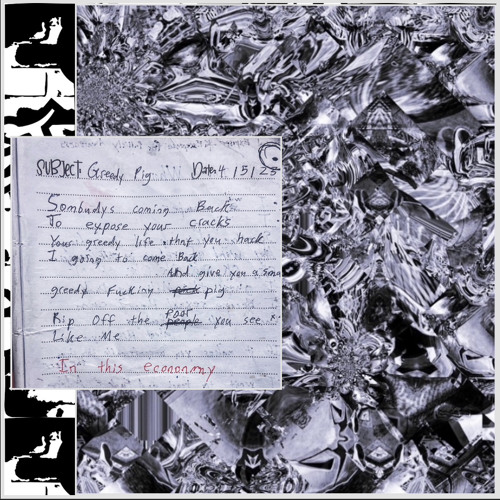 SUBJECT: Greedy Pig Date: 4/5/25
Sombudys coming Back
To expose your cracks
Your greedy life that you hack
I going to come Back
And give you a
greedy Fucking pig
Rip Off the poor people you see
Like Me
In this econonmy